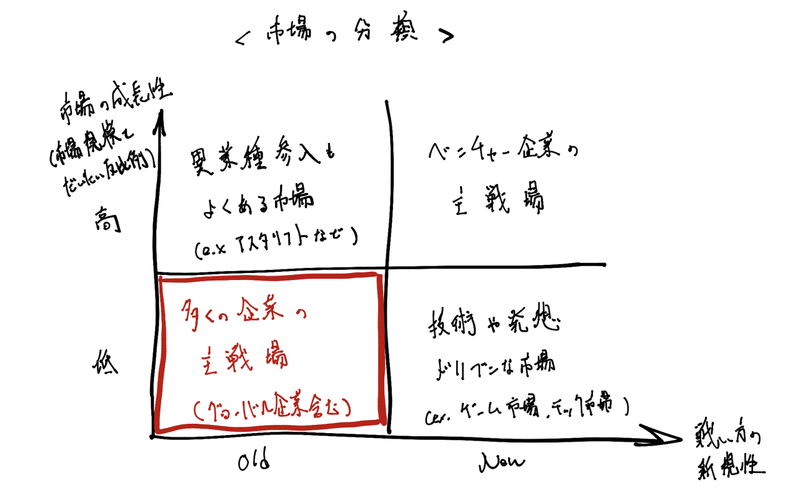 <市場の分類>
市場の成長性
(市場規模と
だいたい反比例)
高
異業種参入も
よくある市場
(e.x アスタリフトなど)
ベンチャー企業の
主戦場
低
多くの企業の
主戦場
(グローバル企業含む)
技術や発想
ドリブンな市場
(ex. ゲーム市場、テック市場)
Old
New
戦い方の
新規性